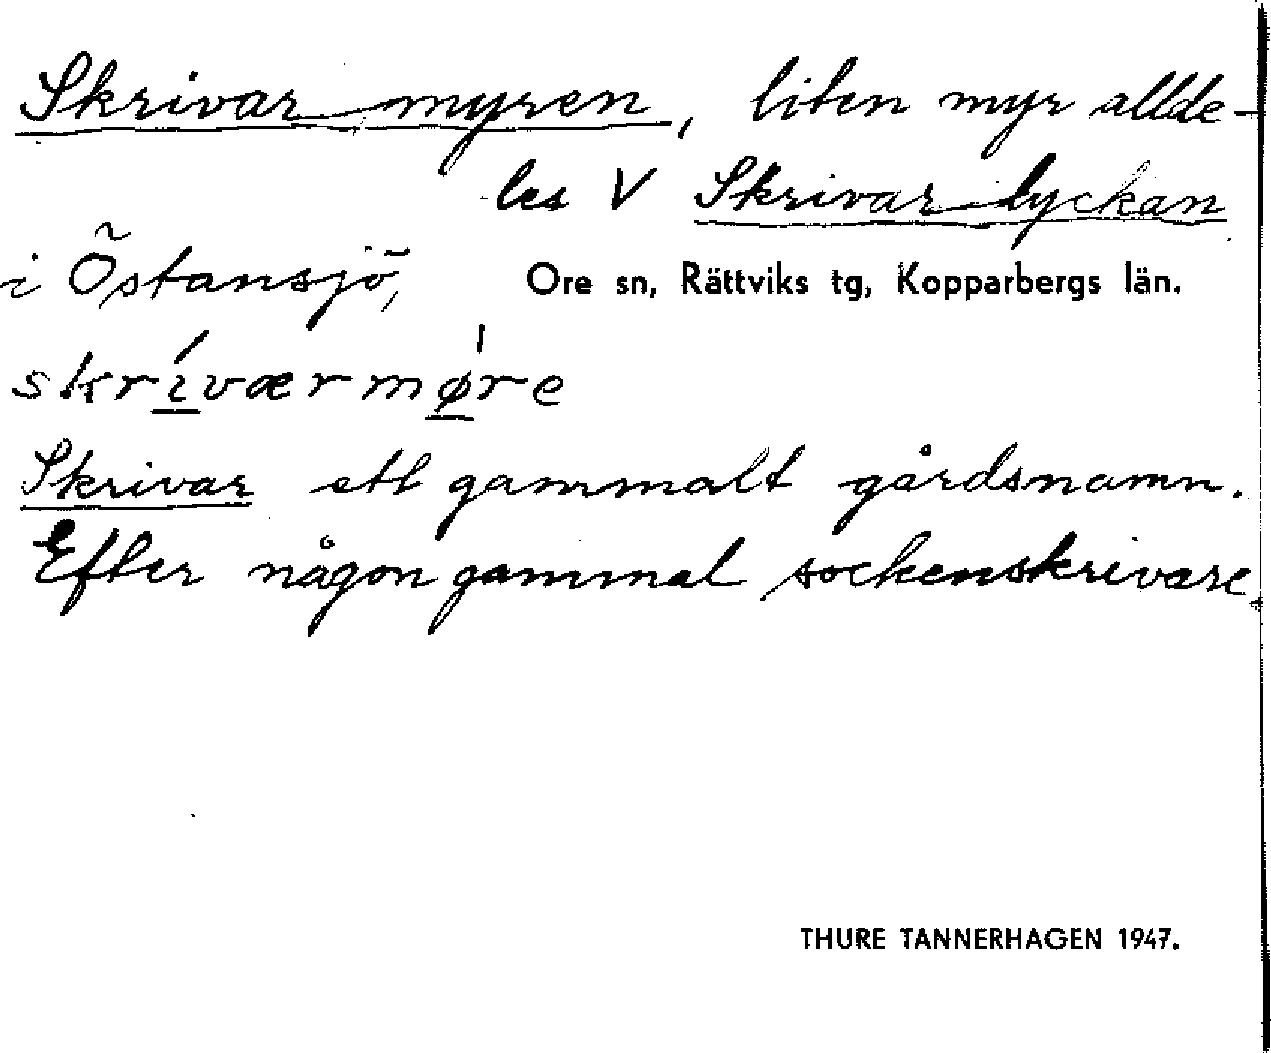 Skrivarmyren, liten myr allde-
les V Skrivarlyckan
i Östansjö, Ore sn, Rättviks tg, Kopparbergs län.
skríværmǿre
Skrivar ett gammalt gårdsnamn.
Efter någon gammal sockenskrivare.
THURE TANNERHAGEN 1947.